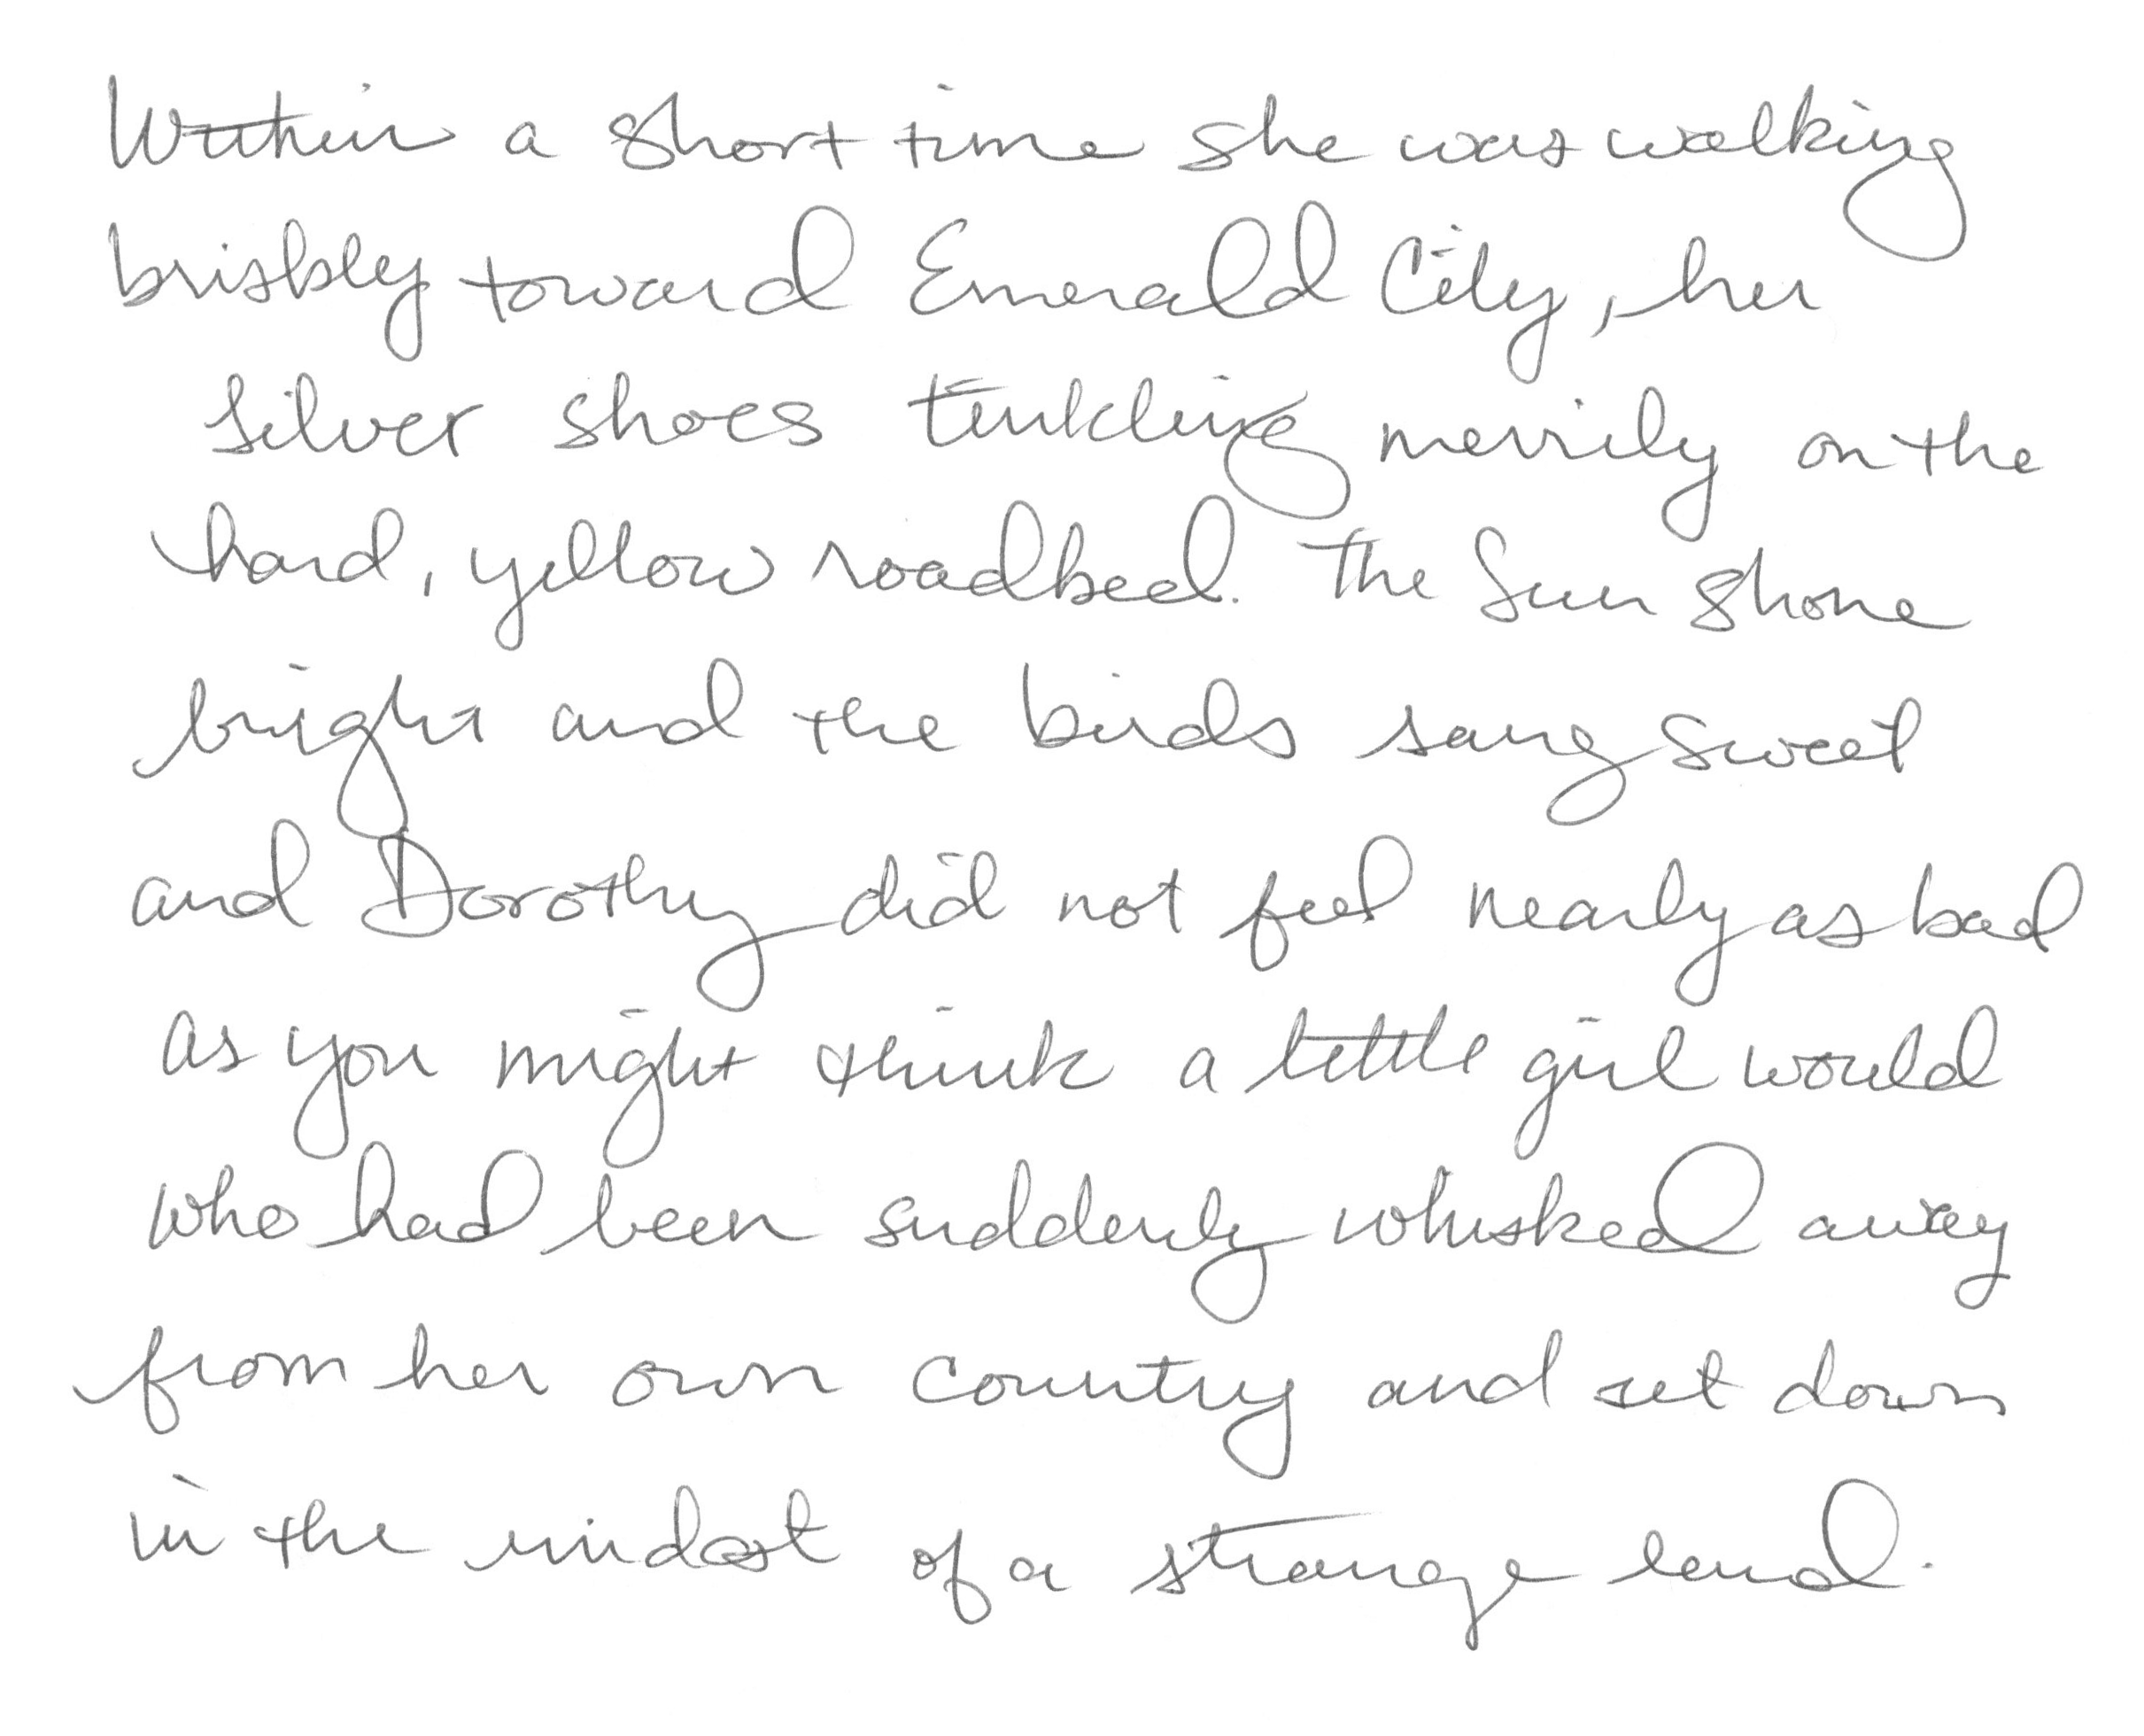 Within a short time she was walking
briskly toward Emerald City, her
Silver shoes tinkling merrily on the
hard, yellow roadbed. The Sun shone
bright and the birds sang sweet
and Dorothy did not feel nearly as bad
as you might think a little girl would
who had been suddenly whisked away
from her own country and set down
in the midst of a strange land.